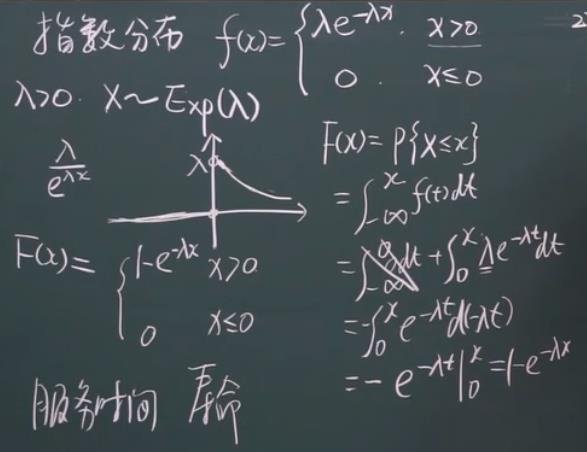 指数分布 f(x)= { λe^{-λx}. x>0
0. x≤0
λ>0. X~Exp(λ)
λ/e^{λx}
λ
F(x)= { 1-e^{-λx} x>0
0 x≤0
服务时间 寿命
F(x)=P{X≤x}
=∫_{-∞}^{x} f(t)dt
=∫_{-∞}^{0} 0dt+∫_{0}^{x} λe^{-λt}dt
=-∫_{0}^{x} e^{-λt}d(-λt)
=-e^{-λt}|_{0}^{x}=1-e^{-λx}